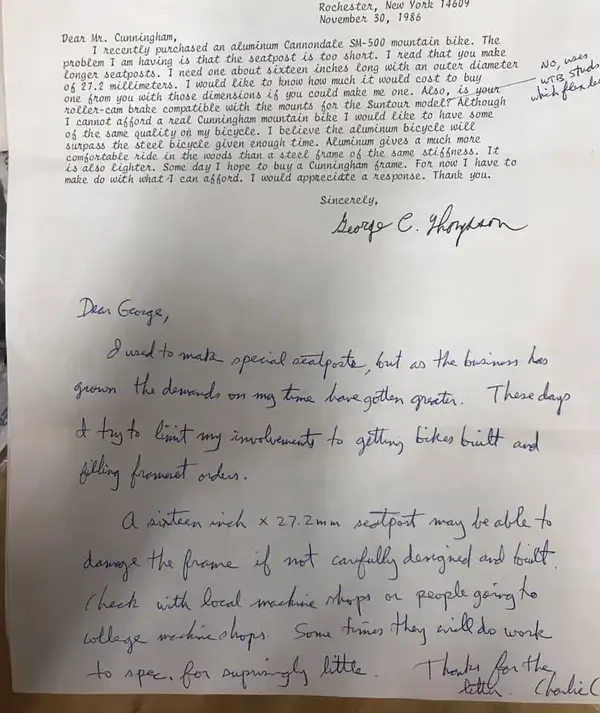 Rochester, New York 14609
November 30, 1986
Dear Mr. Cunningham,
I recently purchased an aluminum Cannondale SM-500 mountain bike. The
problem I am having is that the seatpost is too short. I read that you make
longer seatposts. I need one about sixteen inches long with an outer diameter
of 27.2 millimeters. I would like to know how much it would cost to buy
one from you with those dimensions if you could make me one. Also, is your
roller-cam brake compatible with the mounts for the Suntour model? Although
I cannot afford a real Cunningham mountain bike I would like to have some
of the same quality on my bicycle. I believe the aluminum bicycle will
surpass the steel bicycle given enough time. Aluminum gives a much more
comfortable ride in the woods than a steel frame of the same stiffness. It
is also lighter. Some day I hope to buy a Cunningham frame. For now I have to
make do with what I can afford. I would appreciate a response. Thank you.
NO, uses
WTB studs
which flex less
Sincerely,
George C. Thompson
Dear George,
I used to make special seatposts, but as the business has
grown the demands on my time have gotten greater. These days
I try to limit my involvements to getting bikes built and
filling frameset orders.
A sixteen inch x 27.2mm seatpost may be able to
damage the frame if not carfully designed and built.
Check with local machine shops or people going to
college machine shops. Some times they will do work
to spec. for suprisingly little. Thanks for the
letter. Charlie C